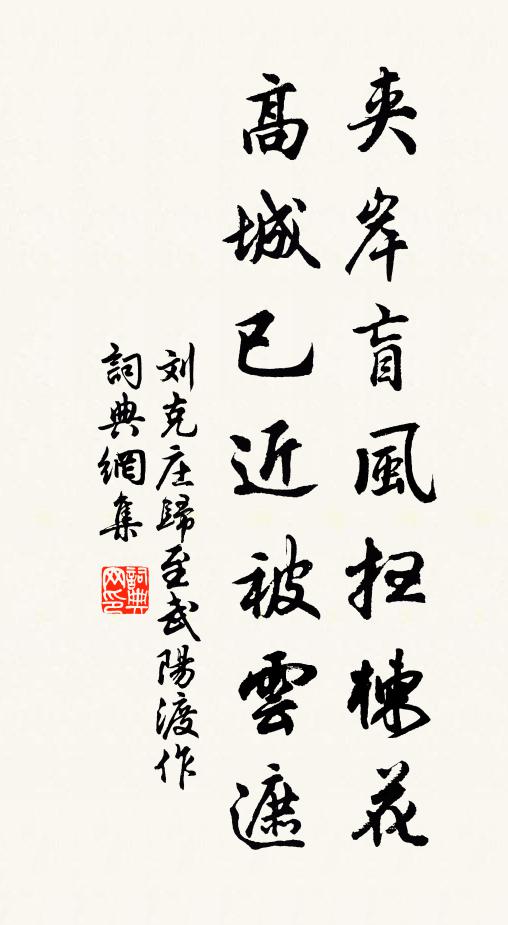 夹岸盲風扫楝花
高城已近被雲遮
刘克庄歸至武陽渡作
詞典網集
詞典网印